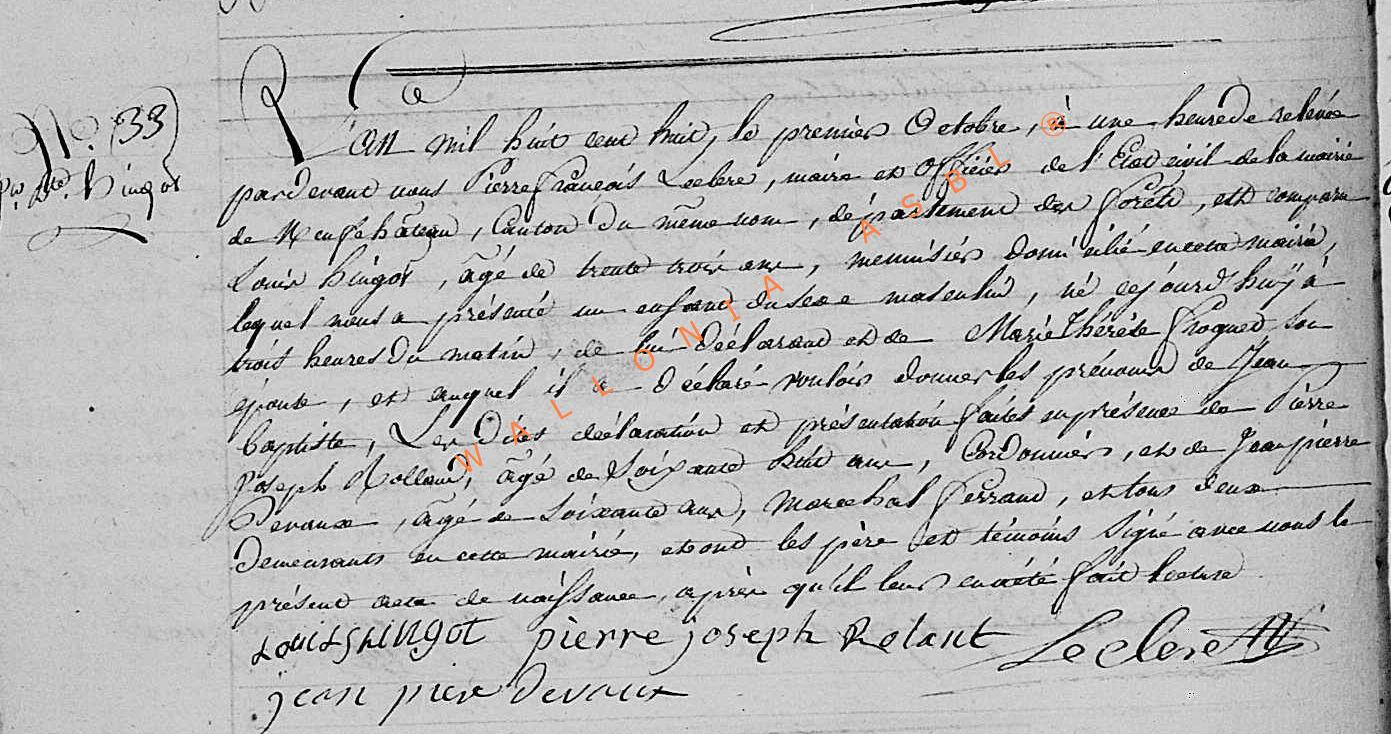 N.o 33
Jn. Bte. hingot
L'an mil huit cent huit, le premier Octobre, à une heure de relevée
pardevant nous Pierre françois Leclere, maire et officier de l'Etat civil de la mairie
de Neufchâteau, Canton du même nom, département des forêts, est comparu
Louis hingot, âgé de trente trois ans, menuisier domicilié en cette mairie,
lequel nous a présenté un enfant du sexe masculin, né cejourd'huÿ à
trois heures du matin, de lui déclarant et de Marie thérèse froguet son
épouse, et auquel il a déclaré vouloir donner les prénoms de Jean
baptiste, Les dites déclaration et présentation faites en présence de Pierre
Joseph Rolland, âgé de Soixante huit ans, Cordonnier, et de Jean pierre
Devaux, âgé de soixante ans, marechal ferrand, et tous deux
demeurants en cette mairie, et ont les père et témoins signé avec nous le
présent acte de naissance, après qu'il leur en a été fait lecture
Louis hingot pierre joseph Rolant Leclere
jean piere devaux
WALLONIA ASBL ®